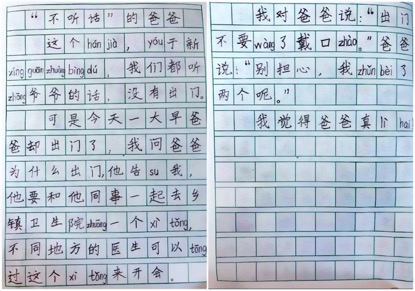 “不听话”的爸爸
这个hán jià，yóu于新
xīng guān zhuàng bìng dú，我们都听
zhōng爷爷的话，没有出门。
可是今天一大早爸
爸却出门了，我问爸爸
为什么出门，他告su我，
他要和他同事一起去乡
镇卫生院zhuāng一个xì tǒng，
不同地方的医生可以tōng
过这个xì tǒng来开会。
我对爸爸说：“出门
不要wàng了戴口zhào。”爸爸
说：“别担心，我zhǔn bèi了
两个呢。”
我觉得爸爸真lì hai